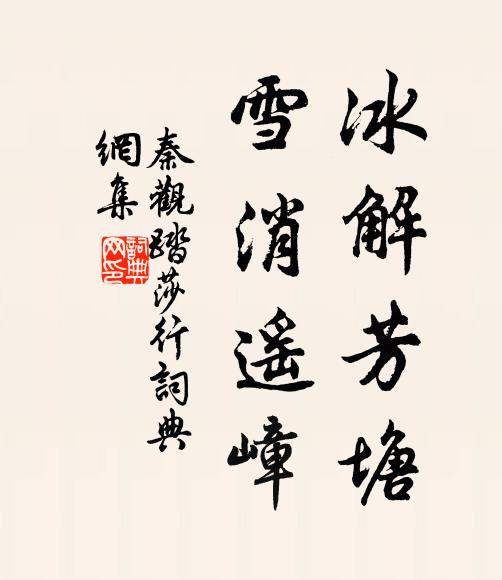 冰解芳塘
雪消遥嶂
秦觀踏莎行詞典
網集
詞典
网印